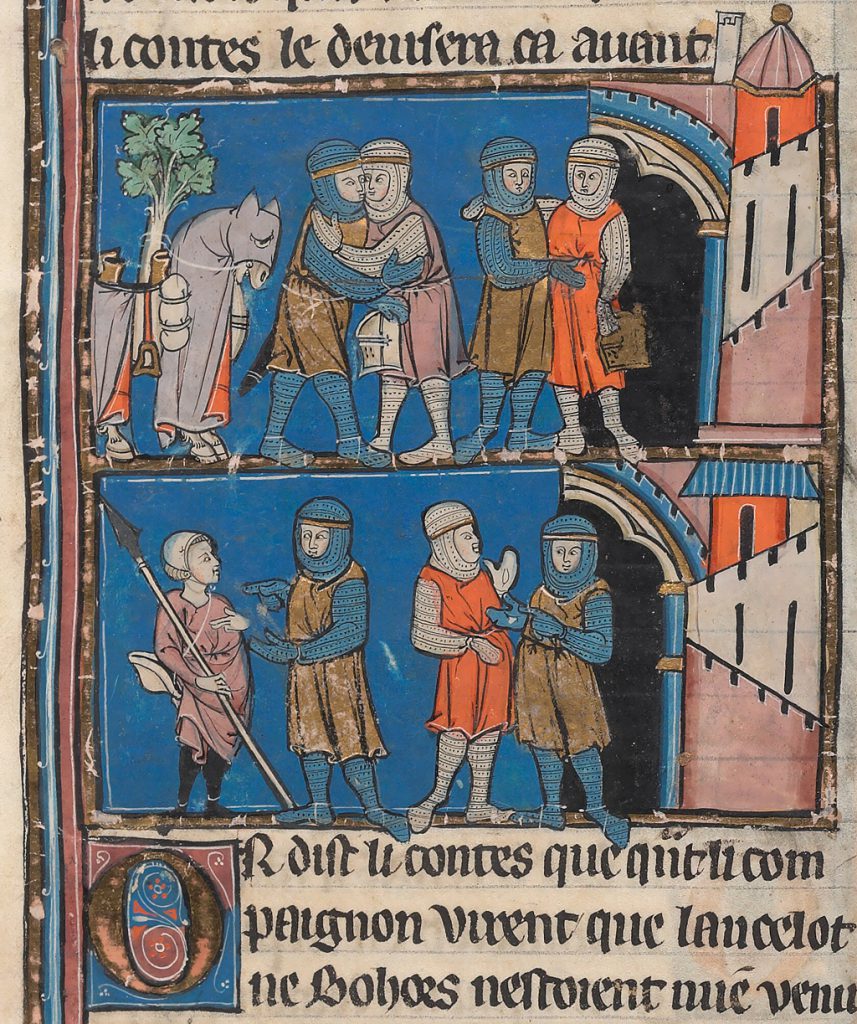 li contes le deuisera ca auant
OR dist li contes que q̄nt li com
paignon virent que lancelot
ne Bohors nestoient mie venu